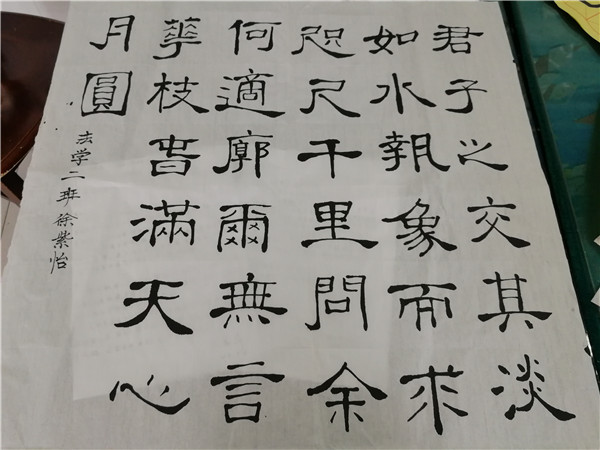 君子之交其淡
如水執象而求
咫尺千里問余
何適廓爾無言
華枝春滿天心
月圓
法学二班徐紫怡